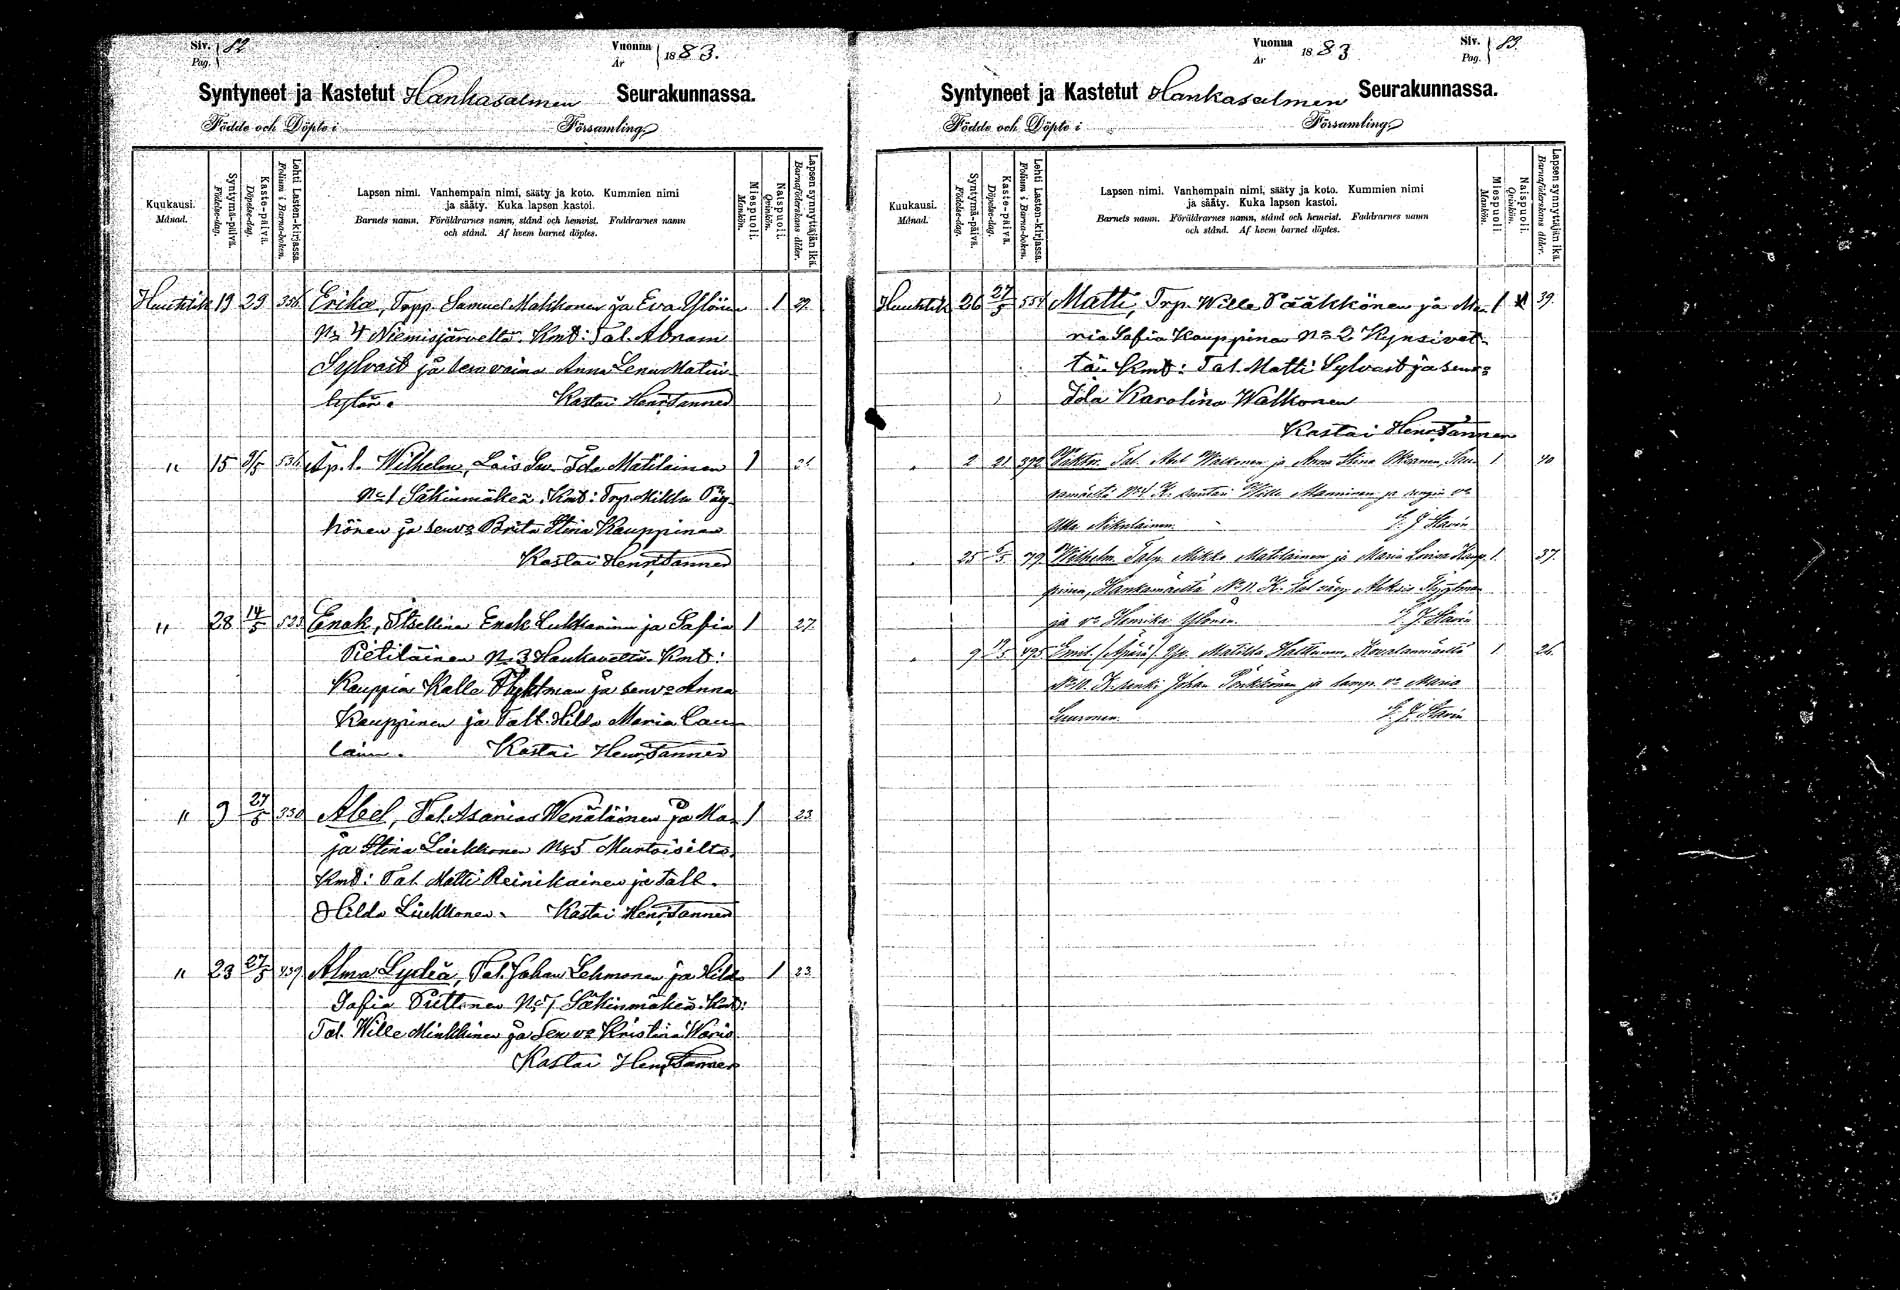 Siv. 82
Pag.
Vuonna
År 1883.
Syntyneet ja Kastetut Hankasalmen Seurakunnassa.
Födde och Döpte i Församling
Kuukausi.
Månad.
Syntymä-päivä.
Födelse-dag.
Kaste-päivä.
Döpelse-dag.
Lehti Lasten-kirjassa.
Folium i Barna-boken.
Lapsen nimi. Vanhempain nimi, sääty ja koto. Kummien nimi
ja sääty. Kuka lapsen kastoi.
Barnets namn. Föräldrarnes namn, stånd och hemvist. Faddrarnes namn
och stånd. Af hvem barnet döptes.
Miespuoli.
Mankön.
Naispuoli.
Qvinkön.
Lapsen synnyttäjän ikä.
Barnaföderskans ålder.
Huhtik 19 29 Erika, Torpp. Samuel Makkonen ja Eva Ylönen 1 29.
No 4 Niemisjärveltä. Kmt: Tal. Abram
Sylvast ja sen vaimo Anna Lena Matin
tytär. Kastai Henr. Tanner
" 15 536 Äp. l. Wilhelm, Lois Ida Matilainen 1 21.
No 1 Säkinmäkeä. Kmt: Trp. Mikko Pöy-
hönen ja sen vo Brita Stina Kauppinen
Kastai Henr. Tanner
" 28 14/5 523 Enok, Itsellinen Enok Lukkarinen ja Sofia 1 27.
Pietiläinen No 3 Hankavettä. Kmt:
Kauppias Kalle Flyktman ja sen vo Anna
Kauppinen ja Talt. Hilda Maria Lau-
lainen. Kastai Henr. Tanner
" 9 27/5 330 Abel, Tal. Asarias Wenäläinen ja Ma- 1 23.
ja Stina Liukkonen No 5 Murtoiselta.
Kmt: Tal. Matti Reinikainen ja Talt.
Hilda Liukkonen. Kastai Henr. Tanner
" 23 27/5 439. Alma Lydia, Tal. Johan Lehmonen ja Hilda 1 23.
Sofia Puttonen No 7 Säkinmäkeä. Kmt:
Tal. Wille Minkkinen ja Sen vo Kristina Waris
Kastai Henr. Tanner
Siv. 83.
Pag.
Vuonna
År 1883
Syntyneet ja Kastetut Hankasalmen Seurakunnassa.
Födde och Döpte i Församling
Kuukausi.
Månad.
Syntymä-päivä.
Födelse-dag.
Kaste-päivä.
Döpelse-dag.
Lehti Lasten-kirjassa.
Folium i Barna-boken.
Lapsen nimi. Vanhempain nimi, sääty ja koto. Kummien nimi
ja sääty. Kuka lapsen kastoi.
Barnets namn. Föräldrarnes namn, stånd och hemvist. Faddrarnes namn
och stånd. Af hvem barnet döptes.
Miespuoli.
Mankön.
Naispuoli.
Qvinkön.
Lapsen synnyttäjän ikä.
Barnaföderskans ålder.
Huhtik 26 27/5 554 Matti, Trp. Wille Pääkkönen ja Ma- 1 39.
ria Sofia Kauppinen No 2 Kynsivet-
tä. Kmt: Tal. Matti Sylvast ja sen vo
Ida Karolina Walkonen
Kastai Henr. Tanner
" 2 21 392 Viktor. Tal. Abel Walkonen ja Anna Stina Oksanen, 1 40
No 4. K. suutari Wille Manninen ja
Ulla Nikulainen. G. J. Stavén
" 25 79. Wilhelm. Talp. Mikko Matilainen ja Maria Lovisa Kaup- 1. 37.
pinen, Hankamäeltä No 11. K. Aleksis Flygtman
ja vo Henrika Ylönen. G. J. Stavén
" 9 13/5 495 Emil. (Äpärä). Matilda Hattunen, Kovalanmäeltä 1 26.
No 11. K. renki Johan Pörkkönen ja vo Maria
Suuronen. G. J. Stavén